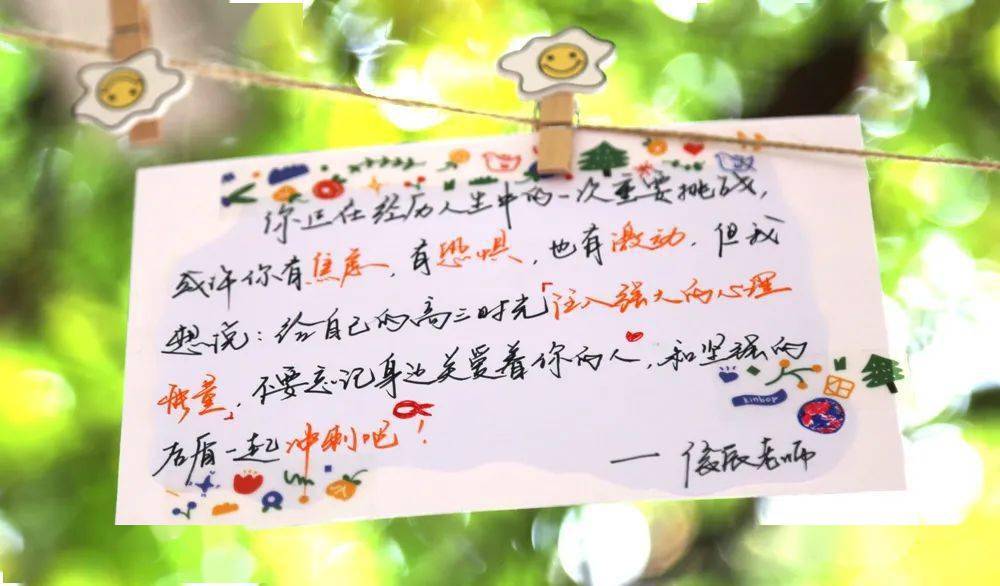 你正在经历人生中的一次重要挑战，
或许你有焦虑，有恐惧，也有激动，但我
想说：给自己的高三时光「注入强大的心理
能量」，不要忘记身边关爱着你的人，和坚强的
后盾一起冲刺吧！
kinbor
— 俊辰老师